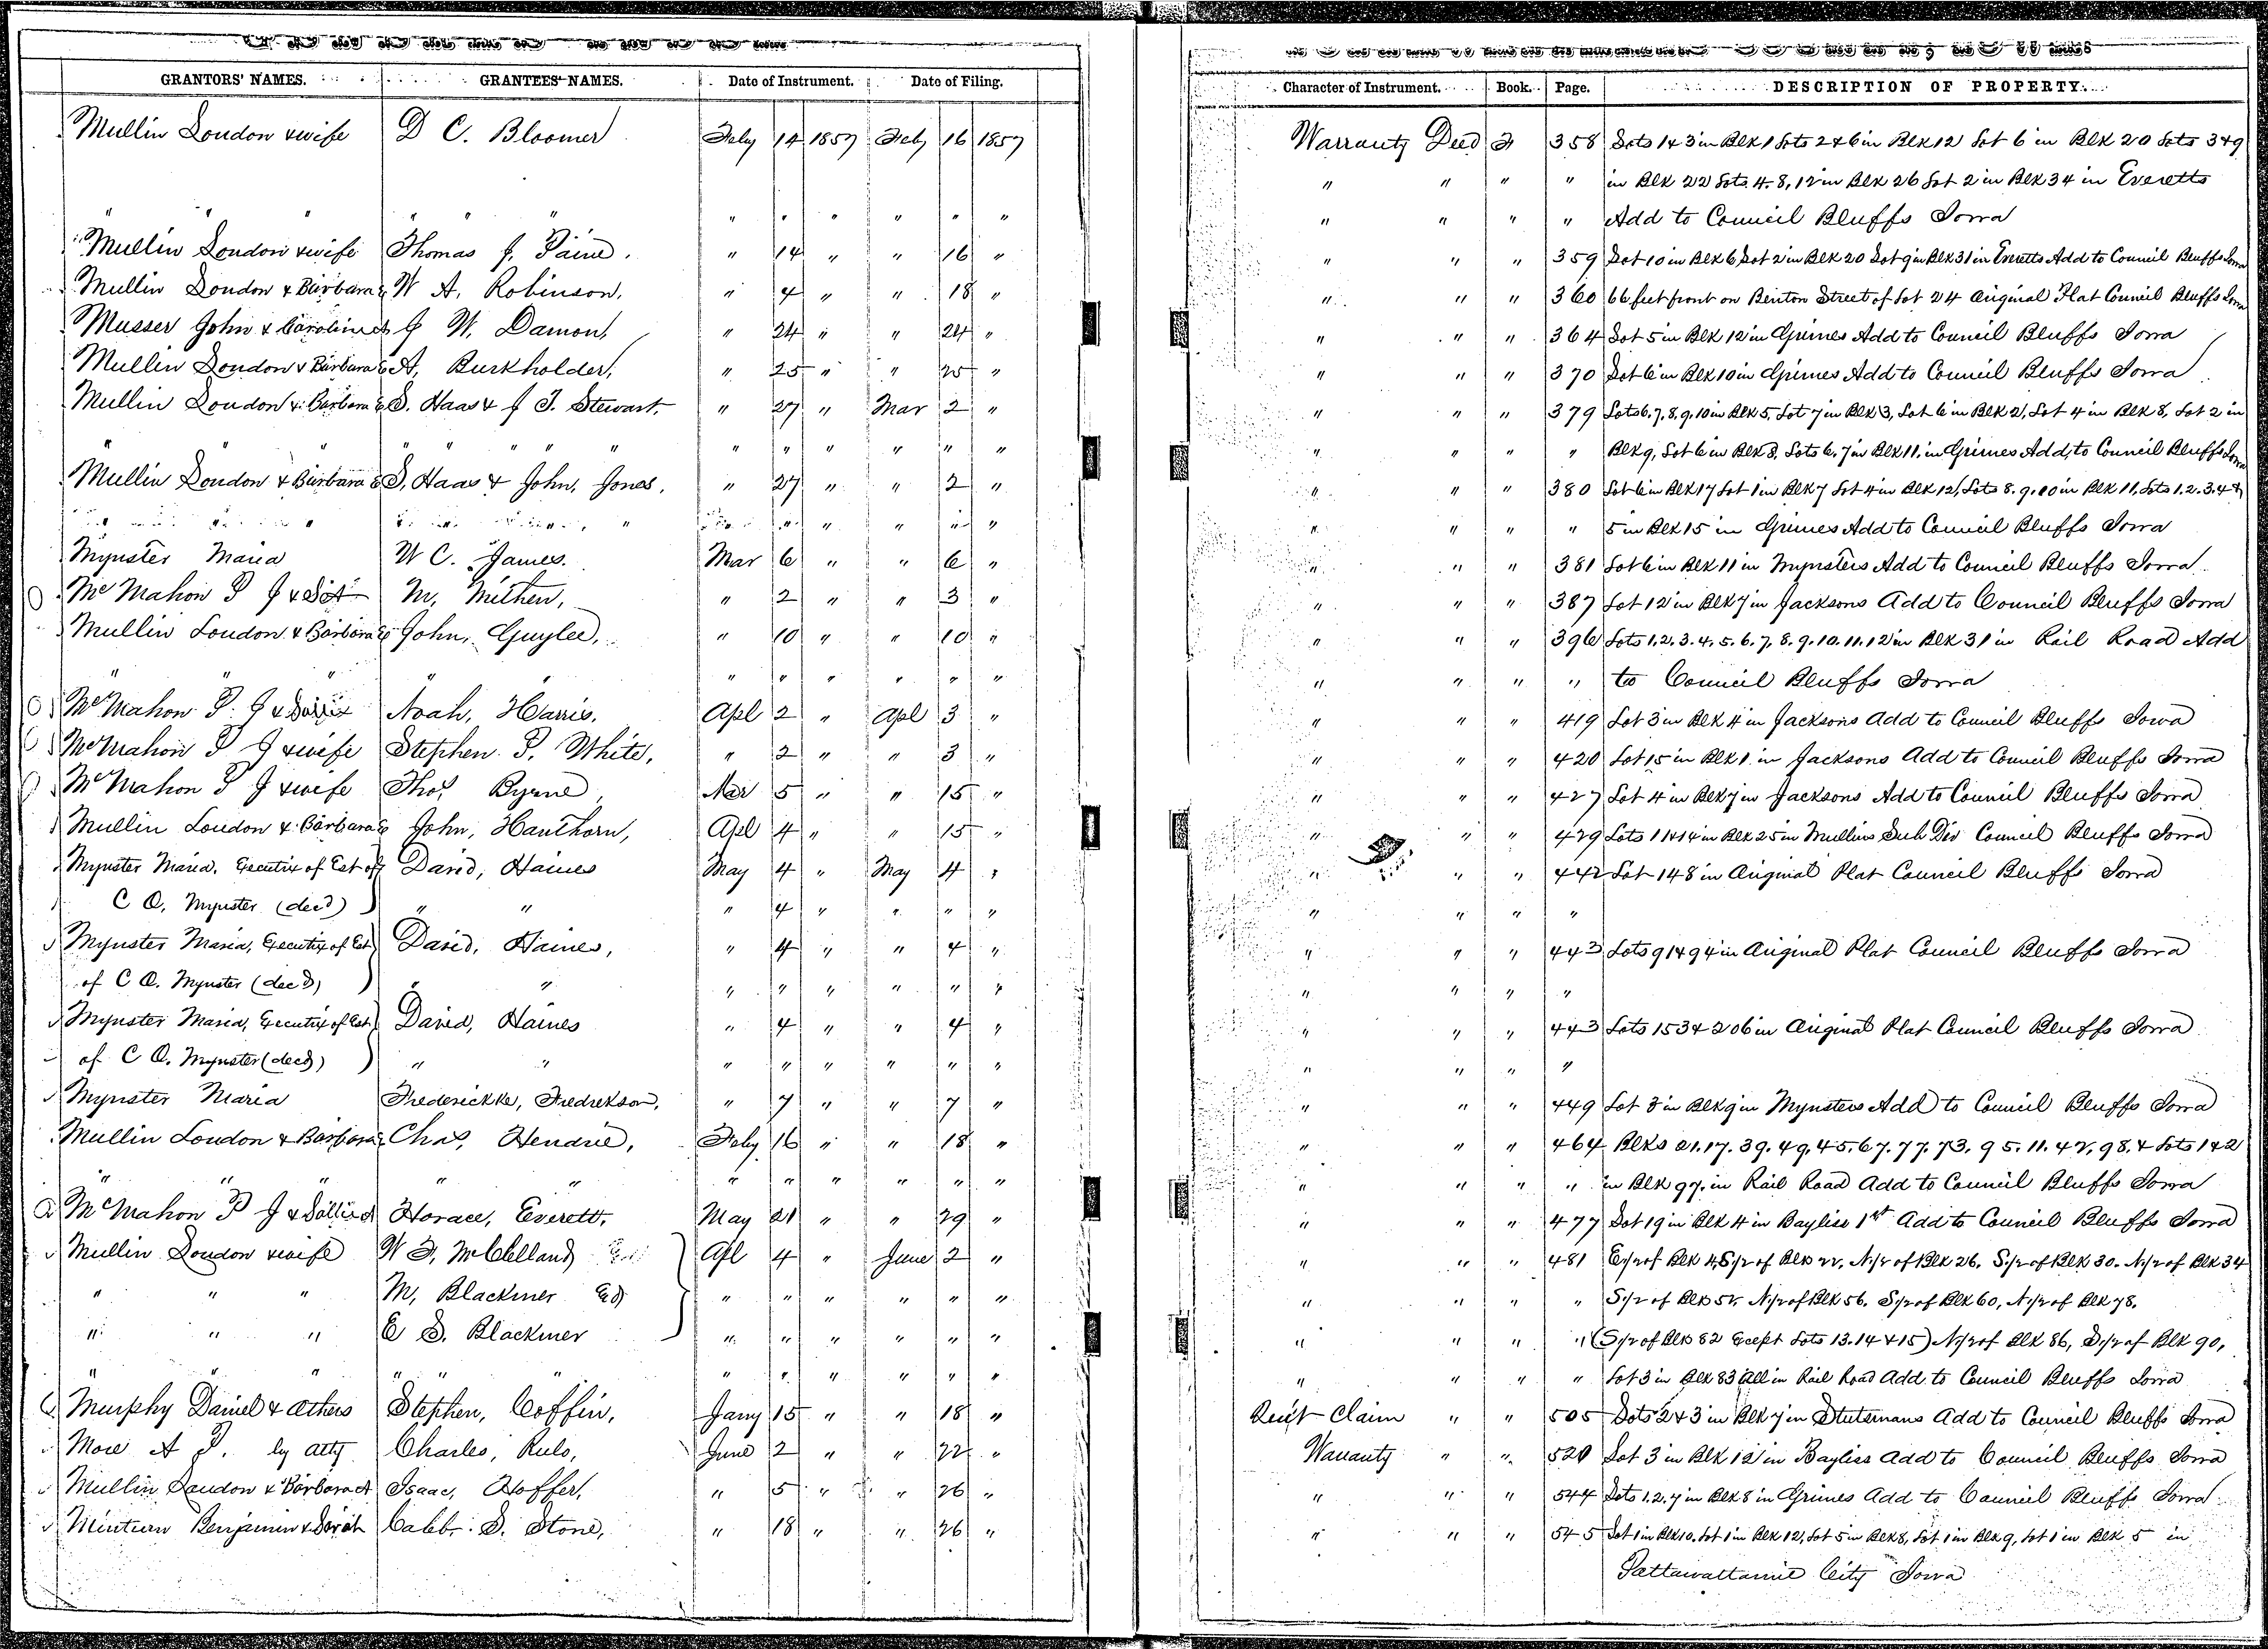 GRANTORS' NAMES. GRANTEES' NAMES. Date of Instrument. Date of Filing. Character of Instrument. Book. Page. DESCRIPTION OF PROPERTY.
Mullin London & wife D C. Bloomer Feby 14 1857 Feby 16 1857 Warranty Deed F 358 Lots 1 & 3 in Blk 1 Lots 2 & 6 in Blk 12 Lot 6 in Blk 20 Lots 3 & 9
" " " " in Blk 22 Lots 4. 8, 12 in Blk 26 Lot 2 in Blk 34 in Everetts
" " " " " " " " " " " " " " " " Add to Council Bluffs Iowa
Mullin London & wife Thomas J. Paine. " 14 " " 16 " " " " 359 Lot 10 in Blk 6 Lot 2 in Blk 20 Lot 9 in Blk 31 in Everetts Add to Council Bluffs Iowa
Mullin London & Barbara E W A. Robinson, " 4 " " 18 " " " " 360 66 feet front on Benton Street of Lot 24 Original Plat Council Bluffs Iowa
Musser John & Caroline J W. Damon, " 24 " " 24 " " " " 364 Lot 5 in Blk 12 in Grimes Add to Council Bluffs Iowa
Mullin London & Barbara E A, Burkholder, " 25 " " 25 " " " " 370 Lot 6 in Blk 10 in Grimes Add to Council Bluffs Iowa
Mullin London & Barbara E S. Haas & J T. Stewart. " 27 " Mar 2 " " " " 379 Lots 6. 7. 8. 9. 10 in Blk 5, Lot 7 in Blk 3, Lot 6 in Blk 2, Lot 4 in Blk 8, Lot 2 in
" " " " " " " " " " " " " " " " Blk 9, Lot 6 in Blk 8, Lots 6. 7 in Blk 11, in Grimes Add, to Council Bluffs Iowa
Mullin London & Barbara E S, Haas & John, Jones, " 27 " " 2 " " " " 380 Lot 6 in Blk 17 Lot 1 in Blk 7 Lot 4 in Blk 12, Lots 8. 9. 10 in Blk 11, Lots 1. 2. 3. 4 &
" " " " " " " " " " " " " " " 5 in Blk 15 in Grimes Add to Council Bluffs Iowa
Mynster Maria W C. James. Mar 6 " " 6 " " " " 381 Lot 6 in Blk 11 in Mynsters Add to Council Bluffs Iowa
Mc Mahon P J & M, Mithen, " 2 " " 3 " " " " 387 Lot 12 in Blk 7 in Jacksons Add to Council Bluffs Iowa
Mullin London & Barbara E John, Guylee, " 10 " " 10 " " " " 396 Lots 1. 2. 3. 4. 5. 6. 7. 8. 9. 10. 11. 12 in Blk 31 in Rail Road Add
" " " " " " " " " " " " to Council Bluffs Iowa
McMahon P. J & Noah, Harris, Apl 2 " Apl 3 " " " " 419 Lot 3 in Blk 4 in Jacksons Add to Council Bluffs Iowa
McMahon P J & wife Stephen P. White, " 2 " " 3 " " " " 420 Lot 15 in Blk 1 in Jacksons Add to Council Bluffs Iowa
McMahon P J & wife Thos Byrne, Mar 5 " " 15 " " " " 427 Lot 4 in Blk 7 in Jacksons Add to Council Bluffs Iowa
Mullin London & Barbara E John, Hauthorn, Apl 4 " " 15 " " " " 429 Lots 11 & 14 in Blk 25 in Mullins Sub Div Council Bluffs Iowa
Mynster Maria. Executrix of Est of David, Haines May 4 " May 4 " " " " 442 Lot 148 in Original Plat Council Bluffs Iowa
C O, Mynster (decd) " " " 4 " " " " " " " "
Mynster Maria, Executrix of Est David, Haines, " 4 " " 4 " " " " 443 Lots 91 & 94 in Original Plat Council Bluffs Iowa
of C O. Mynster (decd) " " " " " " " " " " " "
Mynster Maria, Executrix of Est David, Haines " 4 " " 4 " " " " 443 Lots 153 & 206 in Original Plat Council Bluffs Iowa
of C O. Mynster (decd) " " " " " " " " " " " "
Mynster Maria Frederickke, Fredrekson, " 7 " " 7 " " " " 449 Lot 3 in Blk 9 in Mynsters Add to Council Bluffs Iowa
Mullin London & Barbara Chas, Hendrie, Feby 16 " " 18 " " " " 464 Blks 21. 17. 39. 49. 45. 67. 77. 73. 95. 11. 42, 98, & Lots 1 & 2
" " " " " " " " " " " " " " " in Blk 97. in Rail Road Add to Council Bluffs Iowa
McMahon P J & Horace, Everett, May 21 " " 29 " " " " 477 Lot 19 in Blk 4 in Bayliss 1st Add to Council Bluffs Iowa
Mullin London & wife W F, McClelland Apl 4 " June 2 " " " " 481 E 1/2 of Blk 4, S 1/2 of Blk 22, N 1/2 of Blk 26. S 1/2 of Blk 30. N 1/2 of Blk 34
" " " M, Blackmer " " " " " " " " " " S 1/2 of Blk 52, N 1/2 of Blk 56. S 1/2 of Blk 60, N 1/2 of Blk 78.
" " " E S. Blackmer " " " " " " " " " " (S 1/2 of Blk 82 Except Lots 13. 14 & 15) N 1/2 of Blk 86, S 1/2 of Blk 90,
" " " " " " " " " " " " " " " Lot 3 in Blk 83 All in Rail Road Add to Council Bluffs Iowa
Murphy Daniel & Others Stephen, Coffin, Jany 15 " " 18 " Quit Claim " " 505 Lots 2 & 3 in Blk 7 in Stutsmans Add to Council Bluffs Iowa
More A P. by atty Charles, Rulo, June 2 " " 22 " Warranty " " 520 Lot 3 in Blk 12 in Bayliss Add to Council Bluffs Iowa
Mullin London & Barbara A Isaac, Hoffer, " 5 " " 26 " " " " 544 Lots 1. 2. 7 in Blk 8 in Grimes Add to Council Bluffs Iowa
Minturn Benjamin & Sarah Caleb. S. Stone, " 18 " " 26 " " " " 545 Lot 1 in Blk 10, Lot 1 in Blk 12, Lot 5 in Blk 8, Lot 1 in Blk 9, Lot 1 in Blk 5 in
Pattawattamie City Iowa